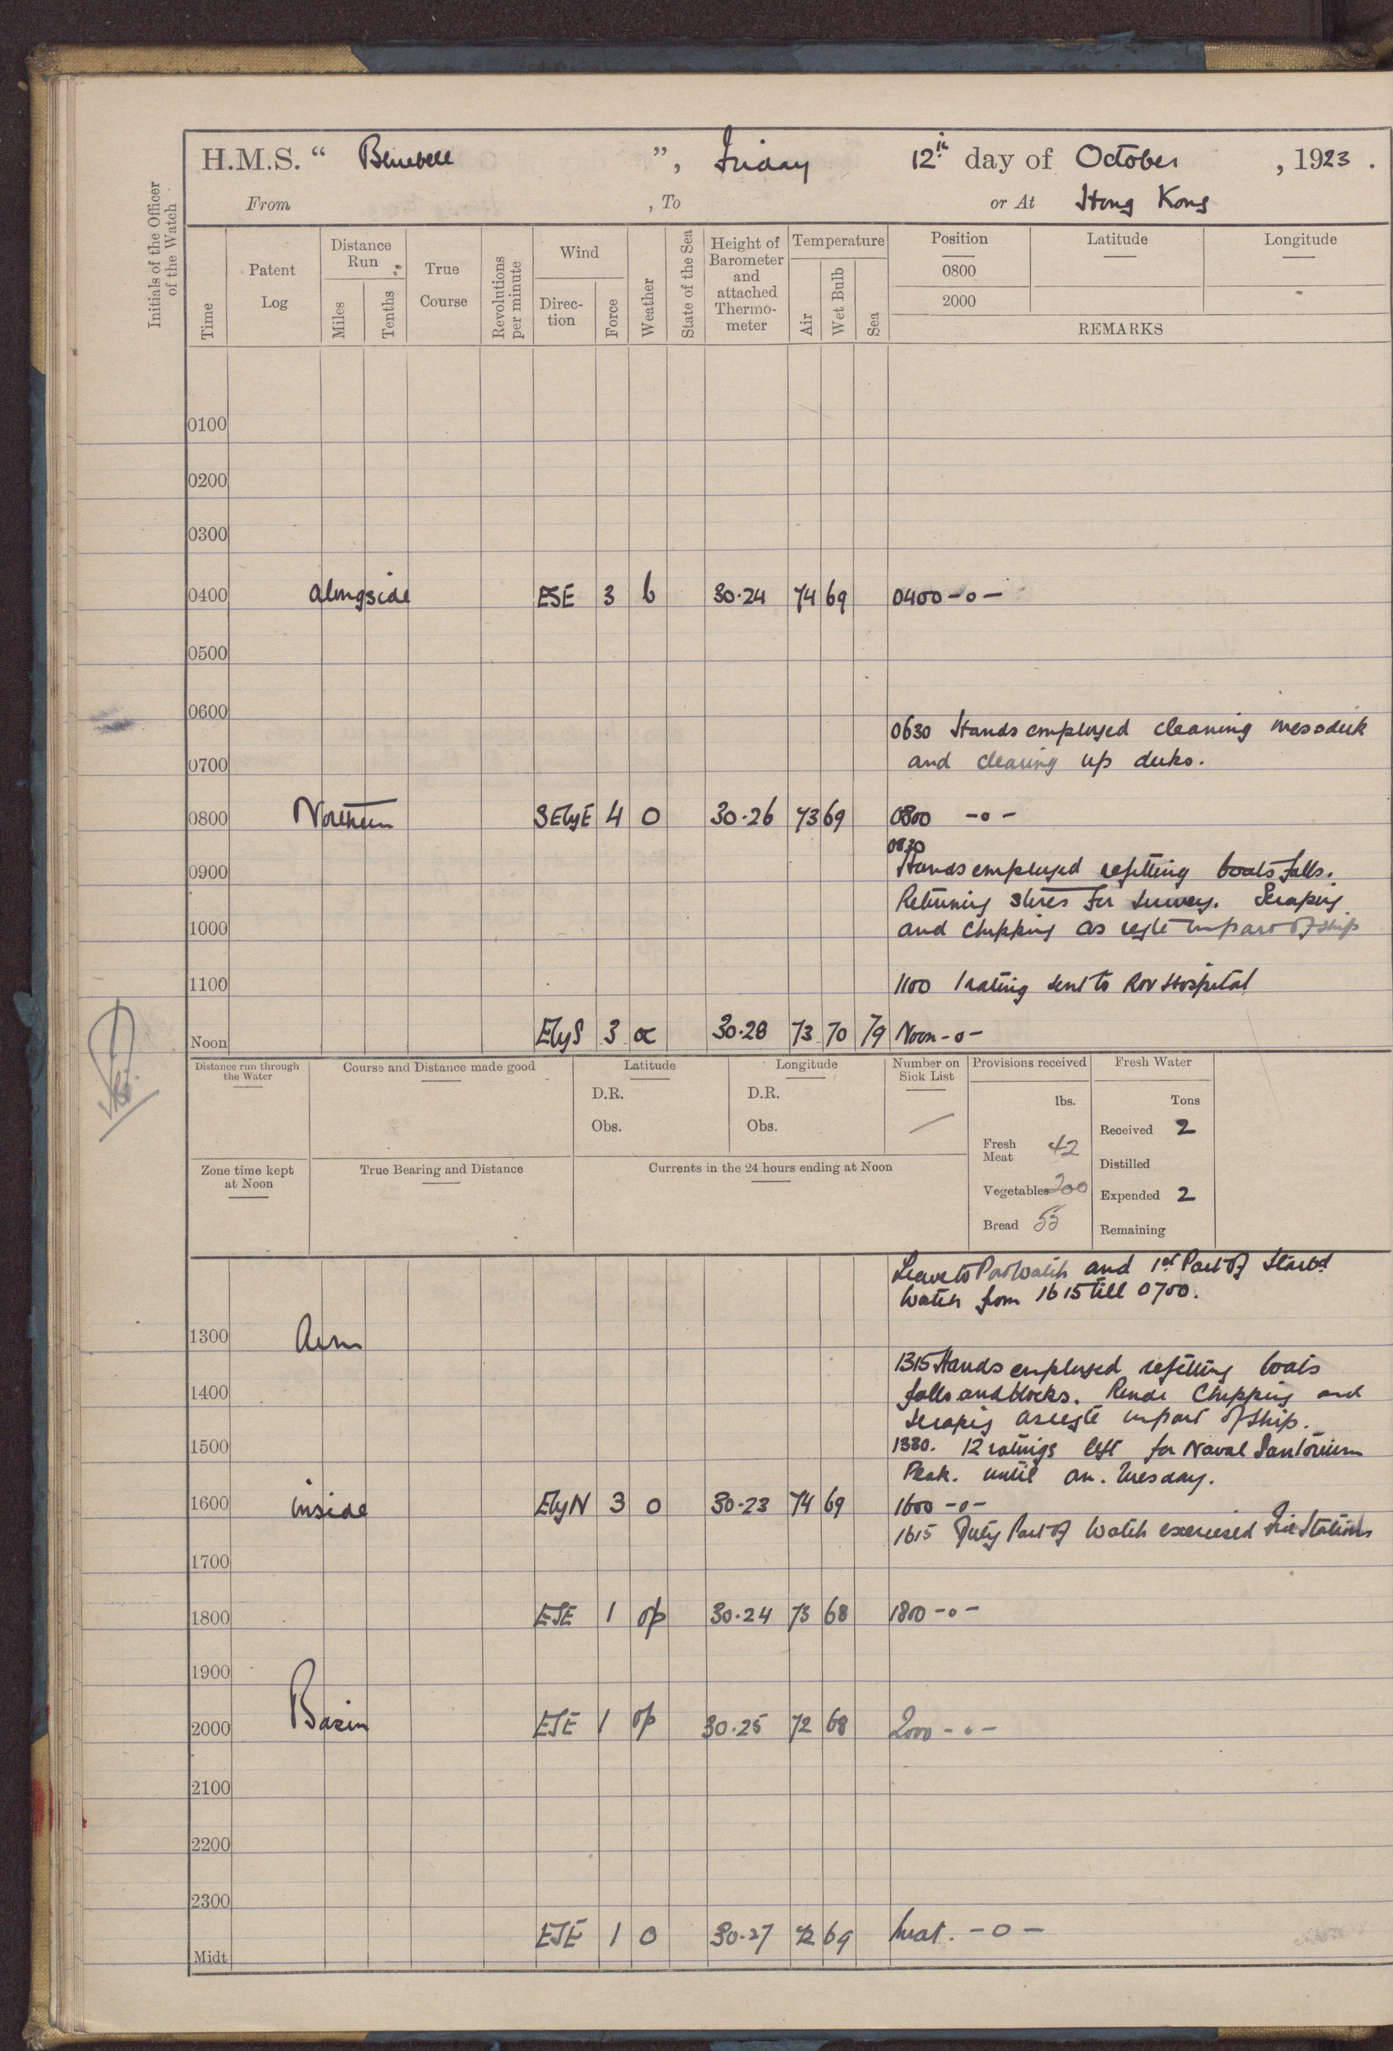 H.M.S. “ Bluebell ”, Friday 12th day of October , 1923 .
From , To or At Hong Kong
Initials of the Officer of the Watch
Time
Patent Log
Distance Run
Miles
Tenths
True Course
Revolutions per minute
Wind
Direc-tion
Force
Weather
State of the Sea
Height of Barometer and attached Thermo-meter
Temperature
Air
Wet Bulb
Sea
Position Latitude Longitude
0800
2000
REMARKS
0100
0200
0300
0400 alongside ESE 3 b 30.24 74 69 0400 -o-
0500
0600
0630 Hands employed cleaning messdeck
0700 and clearing up decks.
0800 Northern SEbyE 4 o 30.26 73 69 0800 -o-
0830
0900 Hands employed refitting boats falls.
Returning stores for survey. Scraping
1000 and chipping as reqte in part of ship
1100 1100 1 rating sent to RN Hospital
Noon EbyS 3 oc 30.28 73 70 79 Noon -o-
Distance run through the Water
Course and Distance made good
Latitude
D.R.
Obs.
Longitude
D.R.
Obs.
Number on Sick List
—
Provisions received
lbs.
Fresh Meat 42
Vegetables 200
Bread 55
Fresh Water
Tons
Received 2
Distilled
Expended 2
Remaining
Zone time kept at Noon
True Bearing and Distance
Currents in the 24 hours ending at Noon
Leave to Port Watch and 1st Part of Starbd
Watch from 1615 till 0700.
1300 Arm
1315 Hands employed refitting boats
1400 falls and blocks. Chipping and
scraping as reqte in part of ship.
1500 1330. 12 ratings left for Naval Sanitorium
Peak. until am. Tuesday.
1600 inside EbyN 3 o 30.23 74 69 1600 -o-
1615 Duty Part of Watch exercised Fire Stations
1700
1800 ESE 1 op 30.24 73 68 1800 -o-
1900
2000 Basin ESE 1 op 30.25 72 68 2000 -o-
2100
2200
2300
Midt ESE 1 o 30.27 72 69 -o-